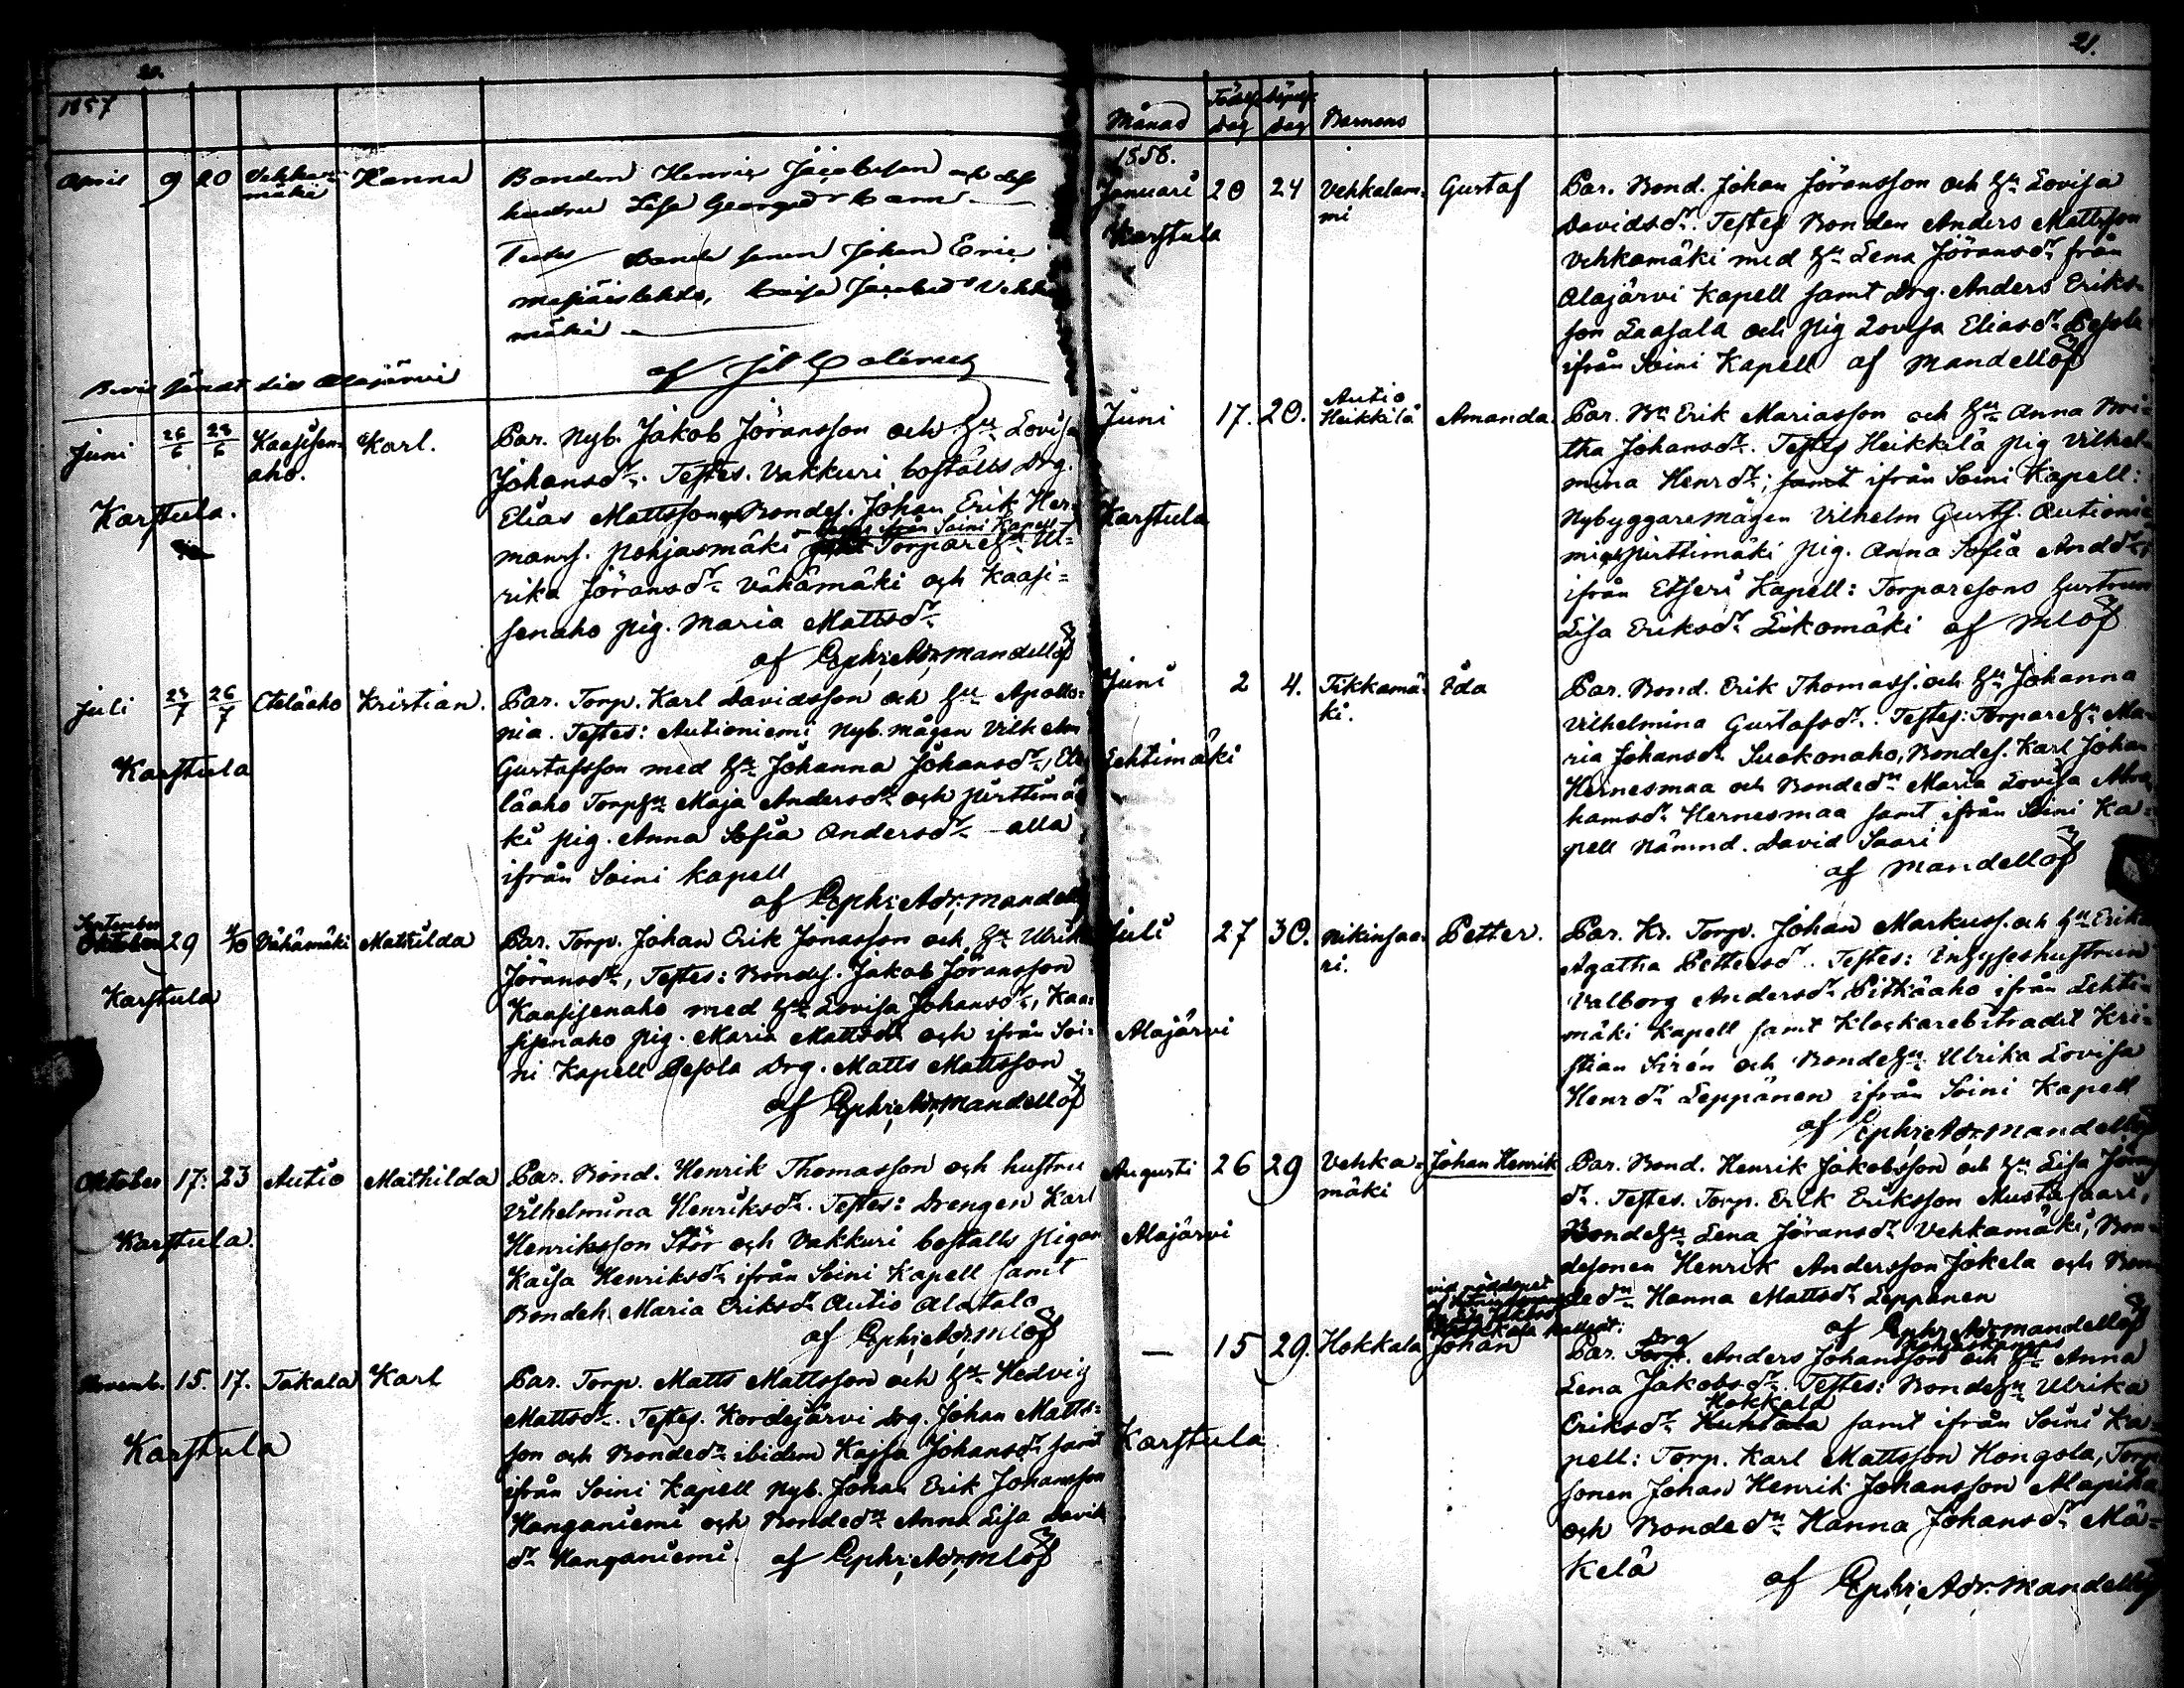 20.
1857
April 9 20 Vehka- Hanna Bonden Henrik Jacobsson och dess
mäki hustru Lisa Georgsdr barn
Testes Bonde sonen Johan Eric
Vehka
mäki
af
Bevis sändt till Alajärvi
Juni 26/6 28/6 Kaasisen- Karl. Par. Nyb. Jakob Jöransson och Hu Lovisa
aho. Johansdr. Testes. Vakkuri boställs Drg.
Karstula. Elias Mattsson, Bondes. Johan Erik Her-
mans. Pohjasmäki ifrån Soini Kapell Torpare Hu Ul-
rika Jöransdr Vähämäki och Kaasi-
senaho pig. Maria Mattsdr
af Ephr. Adr. Mandellöf
Juli 23/7 26/7 Eteläaho Kristian. Par. Torp. Karl Davidsson och Hu Apollo-
nia. Testes: Autioniemi Nyb. mågen Vilhelm
Karstula Gustafsson med Hu Johanna Johansdr, Ete-
läaho Torp Hu Maja Andersdr och Pirttimä-
ki pig. Anna Sofia Andersdr alla
ifrån Soini kapell
af Ephr. Adr. Mandellöf
September
Oktober 29 4/10 Vähämäki Mathilda Par. Torp. Johan Erik Jonasson och Hu Ulrika
Jöransdr, Testes: Bondes. Jakob Jöransson
Karstula Kaasisenaho med Hu Lovisa Johansdr, Kaa-
sisenaho pig. Maria Mattsdr och ifrån Soi-
ni Kapell Pesola Drg. Matts Mattsson
af Ephr. Adr. Mandellöf
Oktober 17. 23 Autio Mathilda Par. Bond. Henrik Thomasson och hustru
Vilhelmina Henriksdr. Testes: Drengen Karl
Karstula. Henriksson Stör och Vakkuri boställs pigan
Kaisa Henriksdr ifrån Soini Kapell samt
Bondeh. Maria Eriksdr Autio Alatalo
af Ephr. Adr. Mlöf
Novemb. 15. 17. Takala Karl Par. Torp. Matts Mattsson och Hu Hedvig
Mattsdr. Testes. Kordesjärvi Drg. Johan Matts-
Karstula son och Bondedr ibidem Kajsa Johansdr samt
ifrån Soini Kapell Nyb. Johan Erik Johansson
Hanganiemi och Bondedr Anna Lisa Davids
dr Hanganiemi. af Ephr. Adr. Mlöf
21.
Månad Födelse dag Döpelse dag Barnens
1858.
Januari 20 24 Vehkalam- Gustaf Par. Bond. Johan Jöransson och Hu Lovisa
mi Davidsdr. Testes Bonden Anders Mattsson
Karstula Vehkamäki med Hu Lena Jöransdr från
Alajärvi Kapell samt Drg. Anders Eriks-
son Laasala och Pig Lovisa Eliasdr Pesola
ifrån Soini Kapell af Mandellöf
Juni 17. 20. Autio Heikkilä Amanda. Par. Bn Erik Mariasson och Hu Anna Bri-
tha Johansdr. Testes Heikkilä Pig Vilhel-
mina Henrdr; samt ifrån Soini Kapell:
Karstula Nybyggaremågen Vilhelm Gustfs. Autionie-
mi och Pirttimäki pig. Anna Sofia Anddr,
ifrån Etseri Kapell: Torparesons hustrun
Lisa Eriksdr Likomäki af Mlöf
Juni 2 4. Tikkamä- Ida Par. Bond. Erik Thomass. och Hu Johanna
ki. Vilhelmina Gustafsdr. Testes: Torpare Hu Ma-
Lehtimäki ria Johansdr Suokonaho, Bondes. Karl Johan
Hernesmaa och Bondedr Maria Lovisa Abra-
hamsdr Hernesmaa samt ifrån Soini Ka-
pell Nämnd. David Saari
af Mandellöf
Juli 27 30. Nikinsaa- Petter. Par. Kr. Torp. Johan Markuss. och Hu Erika
ri. Agatha Pettersdr. Testes: Inhyseshustrun
Valborg Andersdr Pitkäaho ifrån Lehti-
Alajärvi mäki Kapell samt Klockarebiträdet Kri-
stian Sirén och Bonde Hu Ulrika Lovisa
Henrdr Leppänen ifrån Soini Kapell
af Ephr. Adr. Mandellöf
Augusti 26 29 Vehka- Johan Henrik Par. Bond. Henrik Jakobsson och Hu Lisa Jöran
mäki dr. Testes. Torp. Erik Eriksson Mustasaari,
Alajärvi Bonde Hu Lena Jöransdr Vehkamäki, Bon-
desonen Henrik Andersson Jokela och Bon-
dedr Hanna Mattsdr Leppänen
af Ephr. Adr. Mandellöf
— 15 29. Hokkala Johan Par. Drg Torp. Anders Johansson och Hu Anna
Lena Jakobsdr. Testes: Bonde Hu Ulrika
Karstula Eriksdr Hokkala samt ifrån Soini Ka-
pell: Torp. Karl Mattsson Hongola, Torp
sonen Johan Henrik Johansson
och Bondedr Hanna Johansdr Mä-
kelä
af Ephr. Adr. Mandellöf